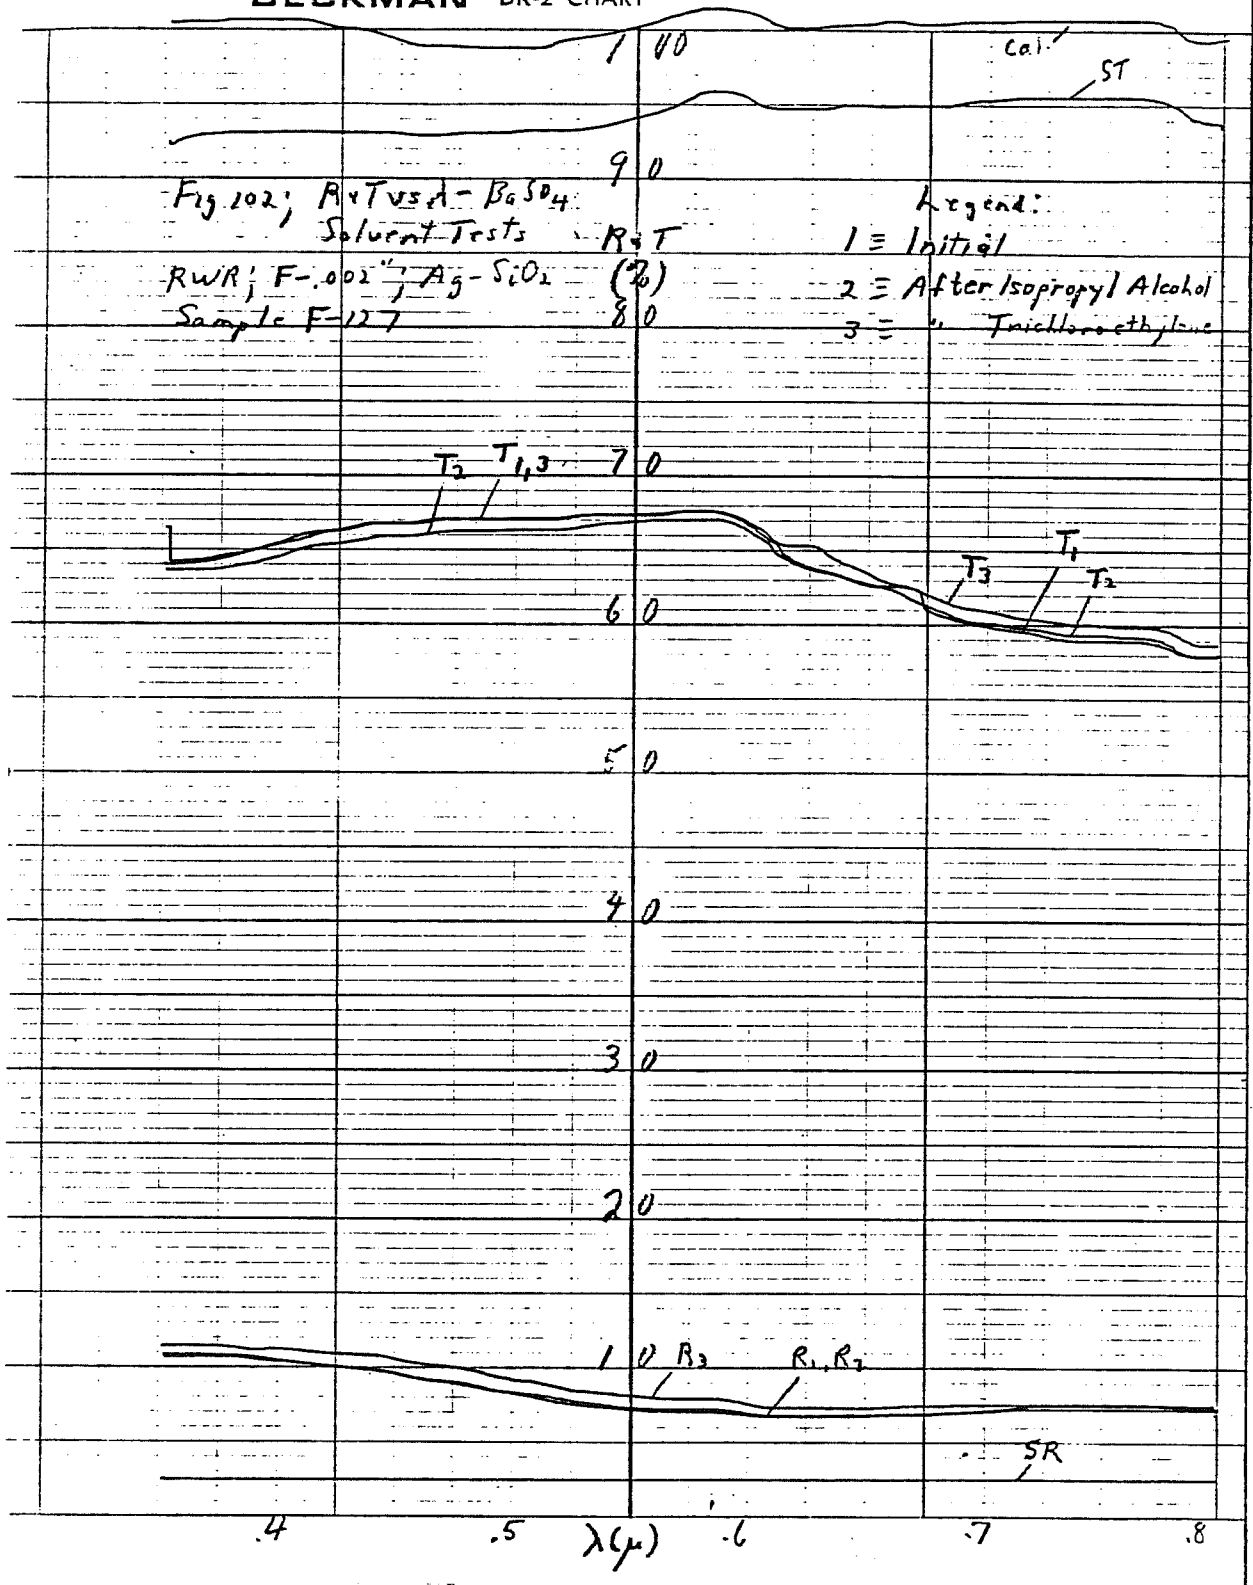 BECKMAN DK-2 CHART
1 00
Cal.
ST
9 0
Fig 102; R&T vs λ - BaSO4
Solvent Tests
RWR; F-.002"; Ag-SiO2
Sample F-127
R&T
(%)
8 0
Legend:
1 ≡ Initial
2 ≡ After Isopropyl Alcohol
3 ≡ " Trichloroethylene
T2 T1,3
7 0
T3 T1 T2
6 0
5 0
4 0
3 0
2 0
1 0
R3 R1, R2
SR
.4 .5 λ(μ) .6 .7 .8